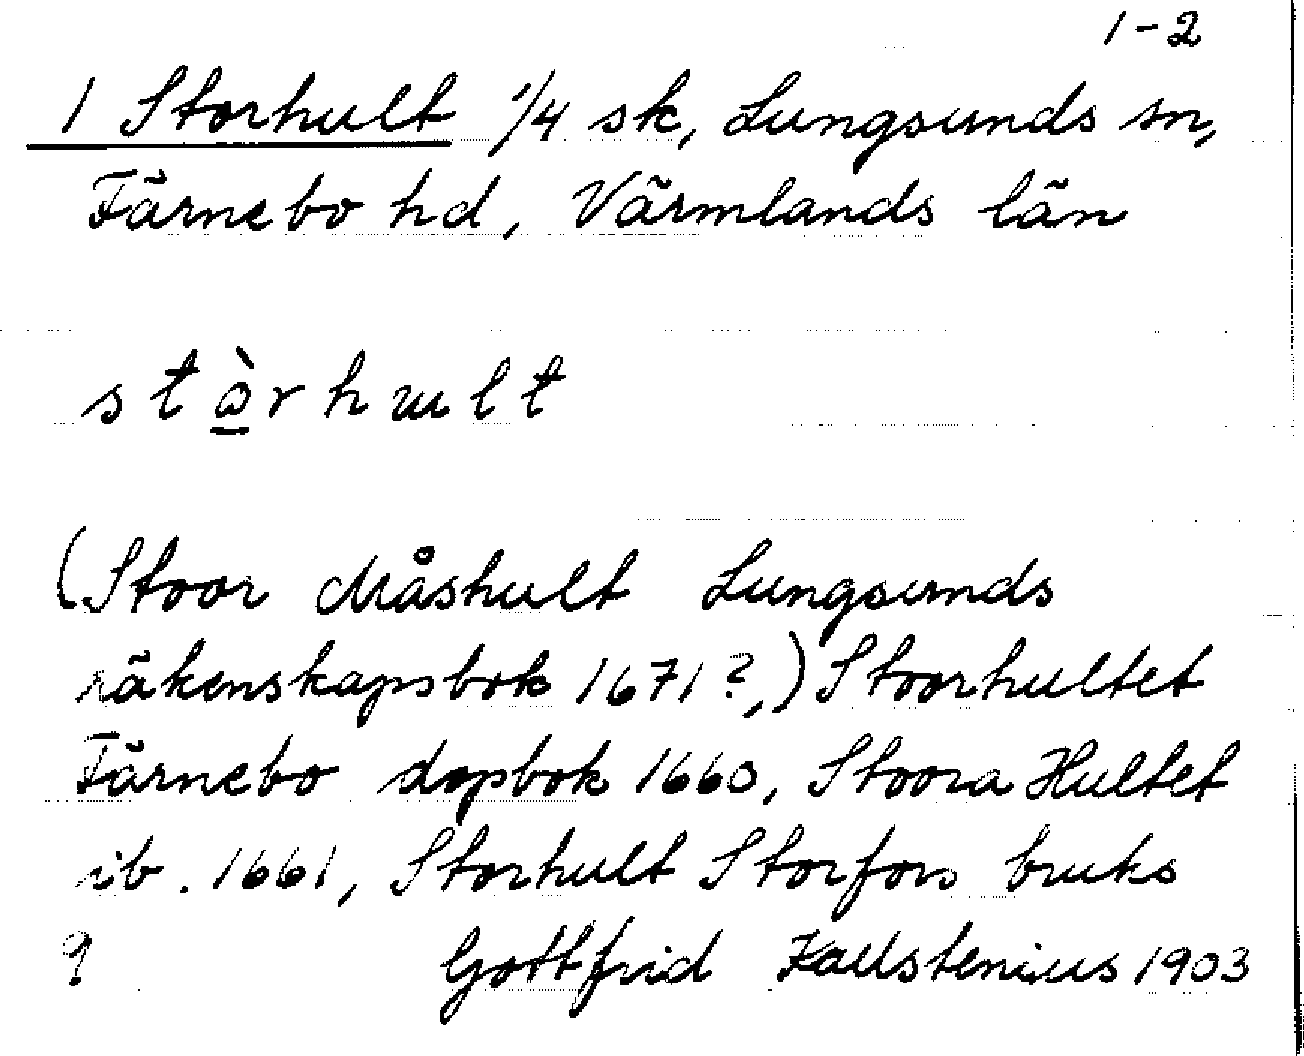 1-2
1 Storhult 1/4 sk, Lungsunds sn,
Färnebo hd, Värmlands län
stə̀rhult
(Stoor Måshult Lungsunds
räkenskapsbok 1671?,) Stoorhultet
Färnebo dopbok 1660, Stoora Hultet
ib. 1661, Storhult Storfors bruks
Gottfrid Kallstenius 1903